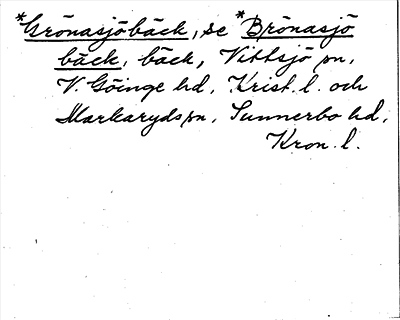 *Grönasjöbäck, se *Brönasjö
bäck, bäck, Vittsjö sn,
V. Göinge hd, Krist. l. och
Markaryds sn, Sunnerbo hd,
Kron. l.